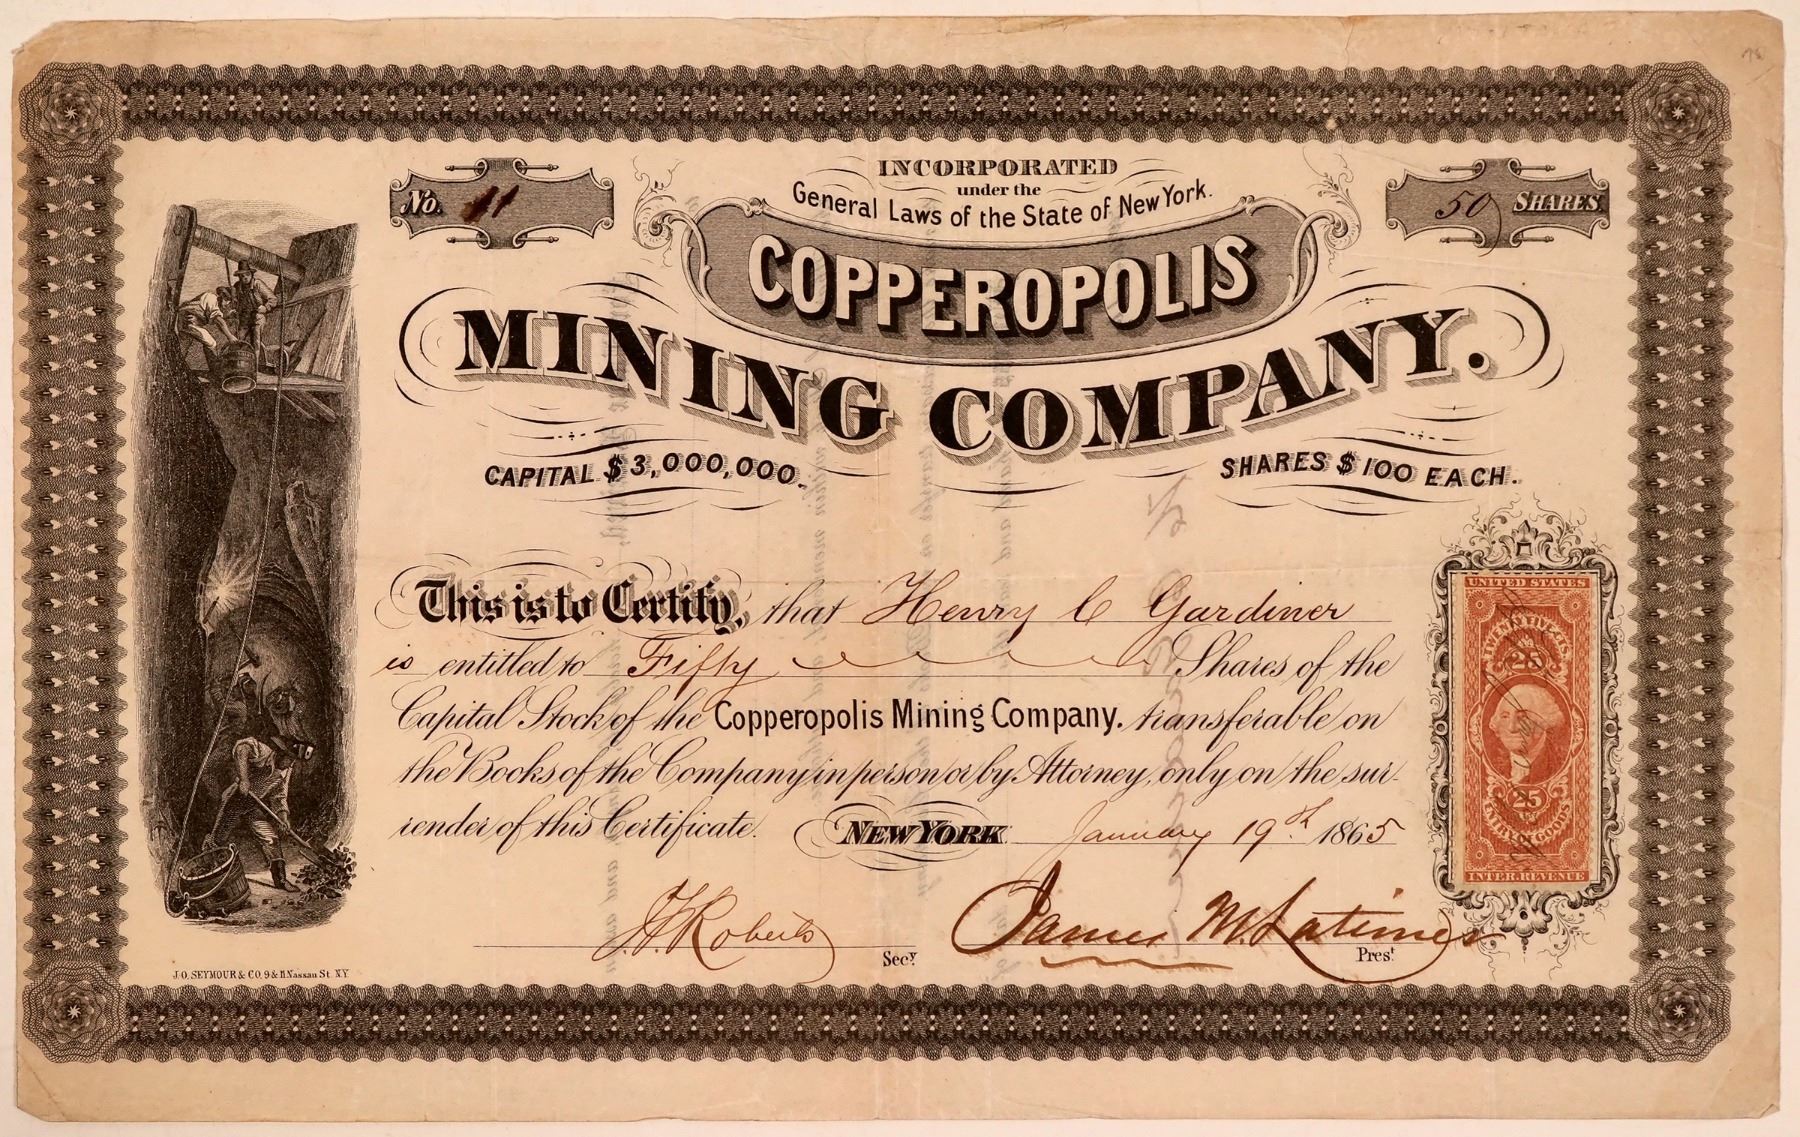 No. 11
INCORPORATED
under the
General Laws of the State of New York.
50 SHARES
COPPEROPOLIS
MINING COMPANY.
CAPITAL $3,000,000.
SHARES $100 EACH.
This is to Certify, that Henry C Gardiner
is entitled to Fifty Shares of the
Capital Stock of the Copperopolis Mining Company. transferable on
the Books of the Company in person or by Attorney, only on the sur-
render of this Certificate.
NEW YORK January 19th 1865
J. F. Roberts Secy.
James M. Latimer Prest.
J.O. SEYMOUR & CO. 9 & 11 Nassau St. N.Y.
UNITED STATES
25
25
WARRANTY OF GOODS
INTER. REVENUE